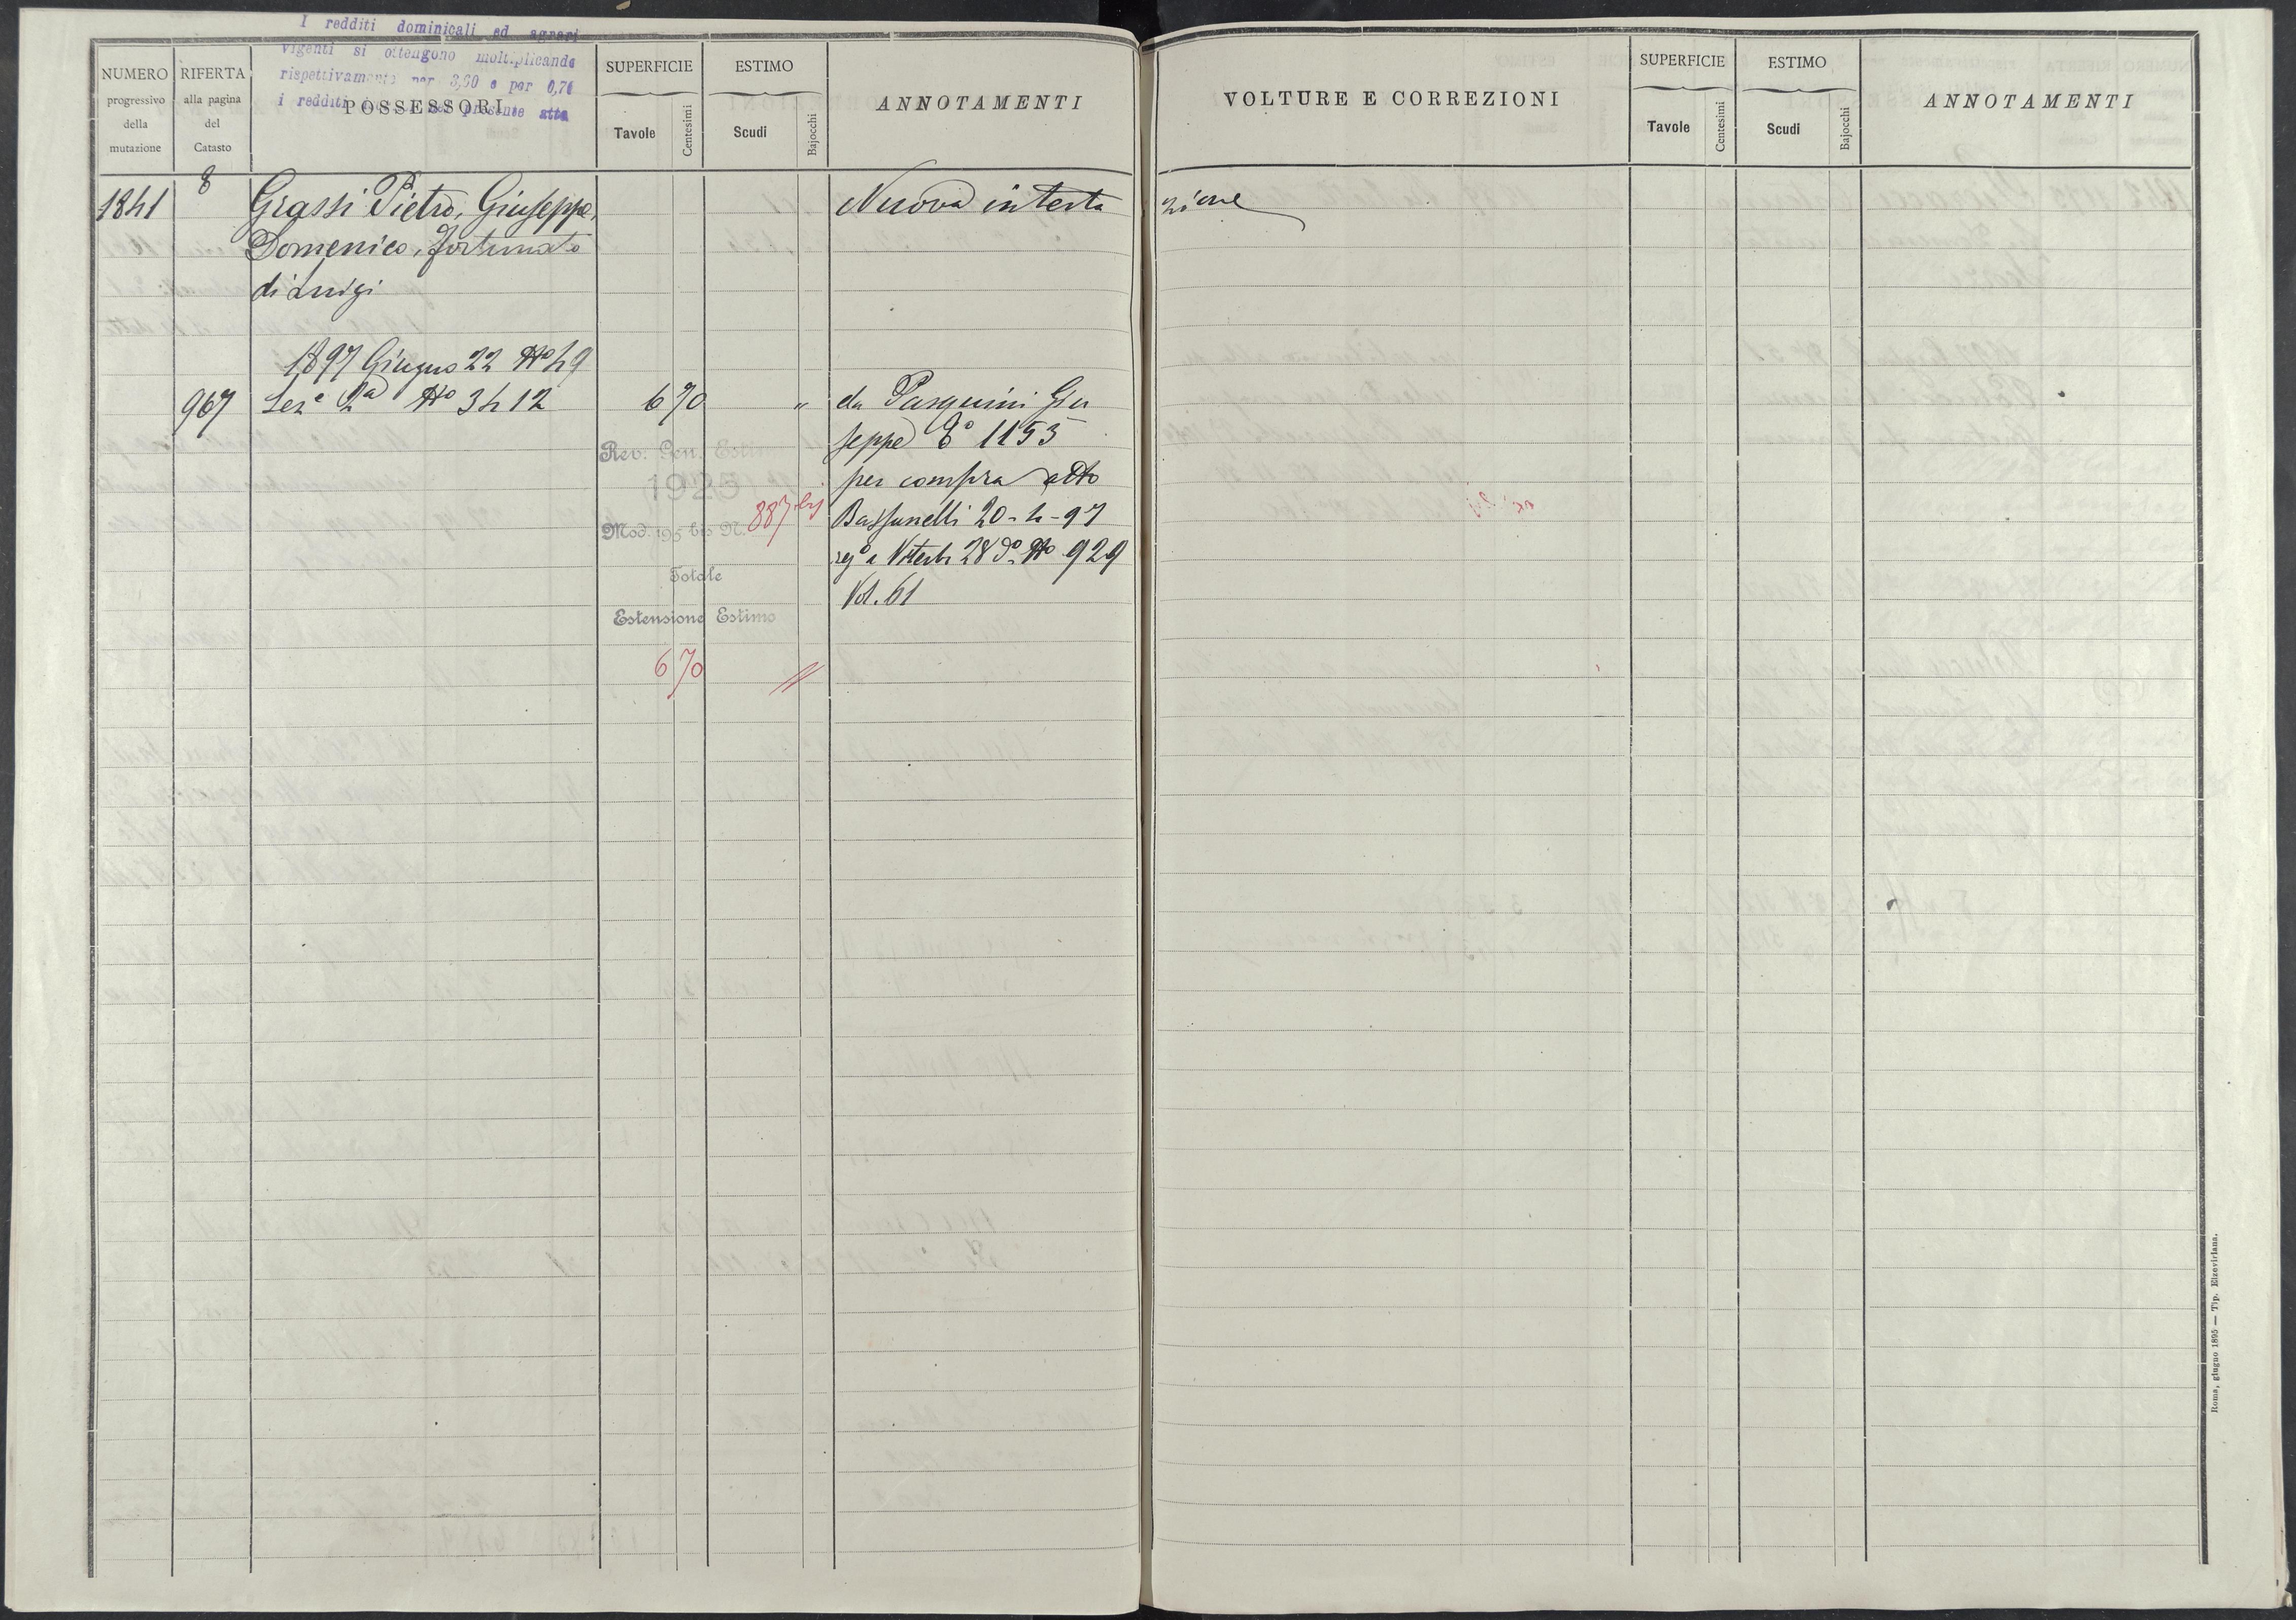 I redditi dominicali ed agrari
vigenti si ottengono moltiplicando
rispettivamente per 3,60 e per 0,76
i redditi nel presente atto
NUMERO
progressivo
della
mutazione
RIFERTA
alla pagina
del
Catasto
POSSESSORI
SUPERFICIE
Tavole
Centesimi
ESTIMO
Scudi
Bajocchi
ANNOTAMENTI
1841
8
Grassi Pietro, Giuseppe,
Domenico, Fortunato
di Luigi
Nuova intesta
1897 Giugno 22 No 49
967 Sez.e 2a No 3412 6 70 "
da Pasquini Giu
seppe 8o 1153
per compra atto
Bassanelli 20-4-97
rego a Viterbo 28 do No 929
Vol. 61
Rev. Gen. Estimi
1925
Mod. 195 bis N. 887 bis
Totale
Estensione Estimo
6 70 "
VOLTURE E CORREZIONI
SUPERFICIE
Tavole
Centesimi
ESTIMO
Scudi
Bajocchi
ANNOTAMENTI
zione
Roma, giugno 1895 — Tip. Elzeviriana.